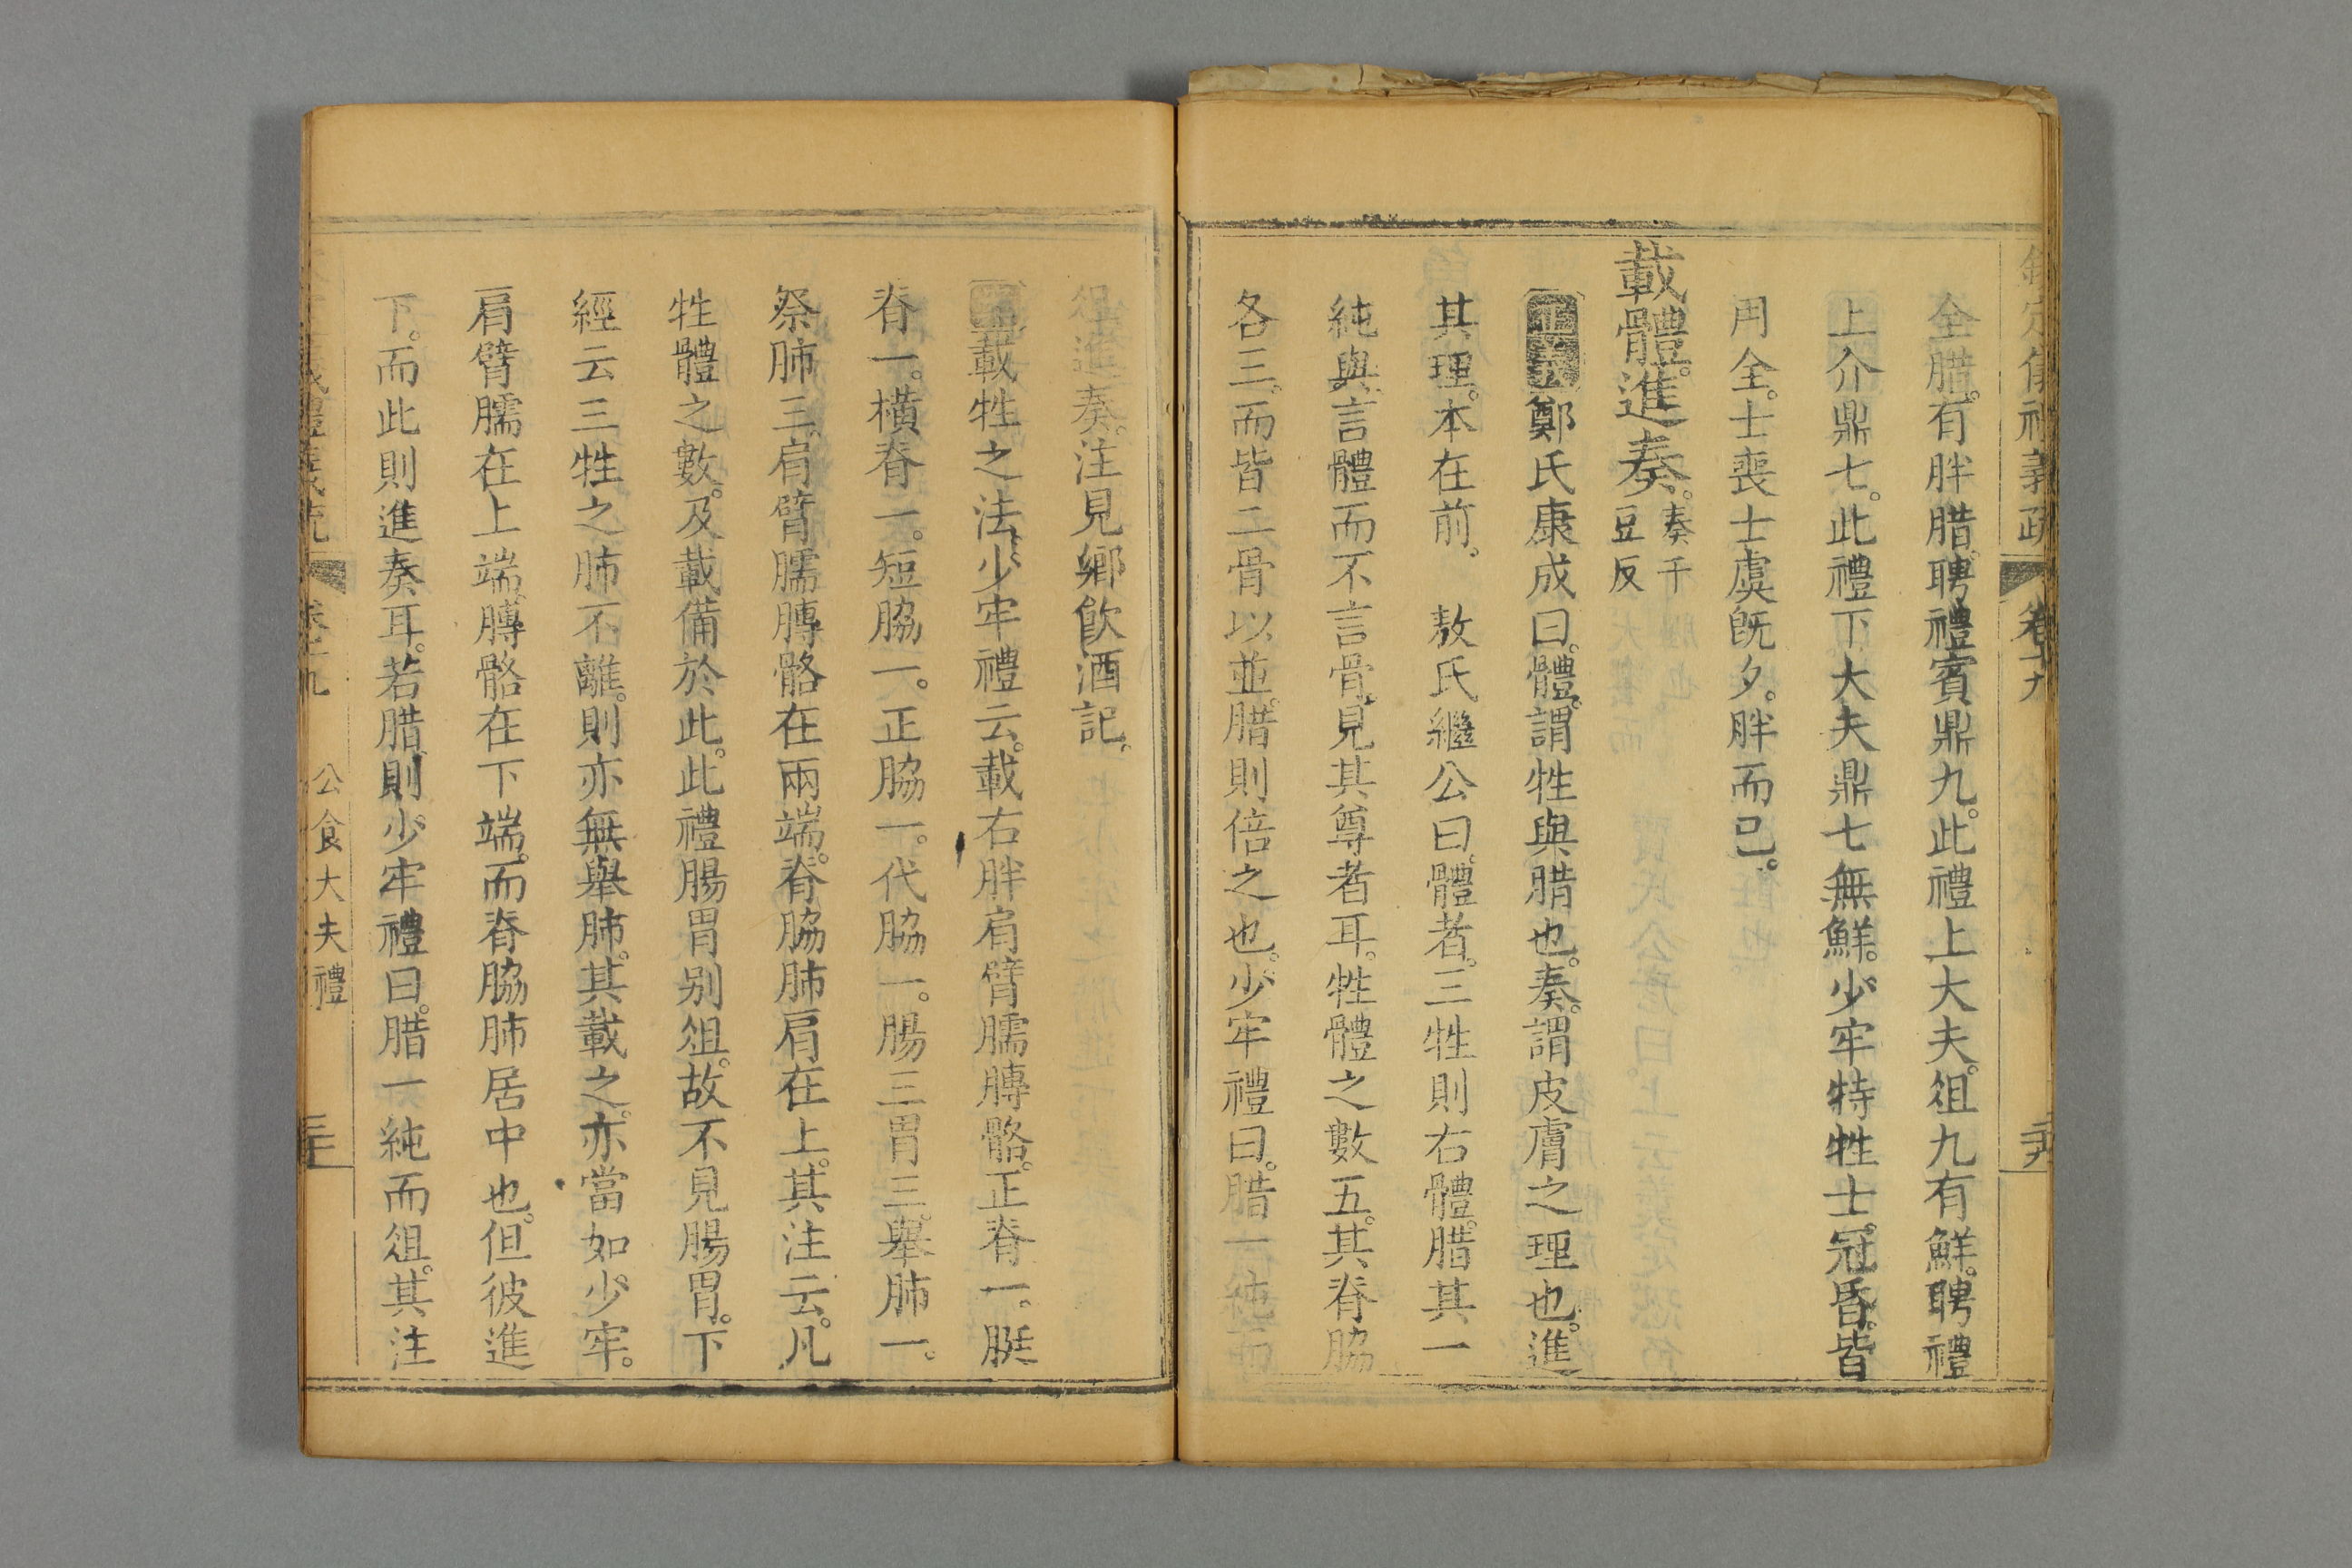 欽定儀禮義疏 卷十九
全腊。有胖腊。聘禮賓鼎九。此禮上大夫。俎九有鮮。聘禮
上介鼎七。此禮下大夫鼎七無鮮。少牢特牲士。冠昏。皆
用全。士喪士虞旣夕。胖而已。
載體。進奏。奏千豆反
鄭氏康成曰。體。謂牲與腊也。奏。謂皮膚之理也。進
其理。本在前。 敖氏繼公曰。體者。三牲則右體。腊其一
純與。言體而不言骨。見其尊者耳。牲體之數五。其脊脇
各三。而皆二骨以並。腊則倍之也。少牢禮曰。腊一純而
俎。進奏。注見鄉飲酒記。
載牲之法。少牢禮云。載右胖肩臂臑膊骼。正脊一。脡
脊一。橫脊一。短脇一。正脇一。代脇一。腸三胃三。舉肺一。
祭肺三。肩臂臑膊骼在兩端。脊脇肺肩在上。其注云。凡
牲體之數。及載備於此。此禮腸胃別俎。故不見腸胃。下
經云三牲之肺不離。則亦無舉肺。其載之。亦當如少牢。
肩臂臑在上端。膊骼在下端。而脊脇肺居中也。但彼進
下。而此則進奏耳。若腊。則少牢禮曰。腊一純而俎。其注
公食大夫禮